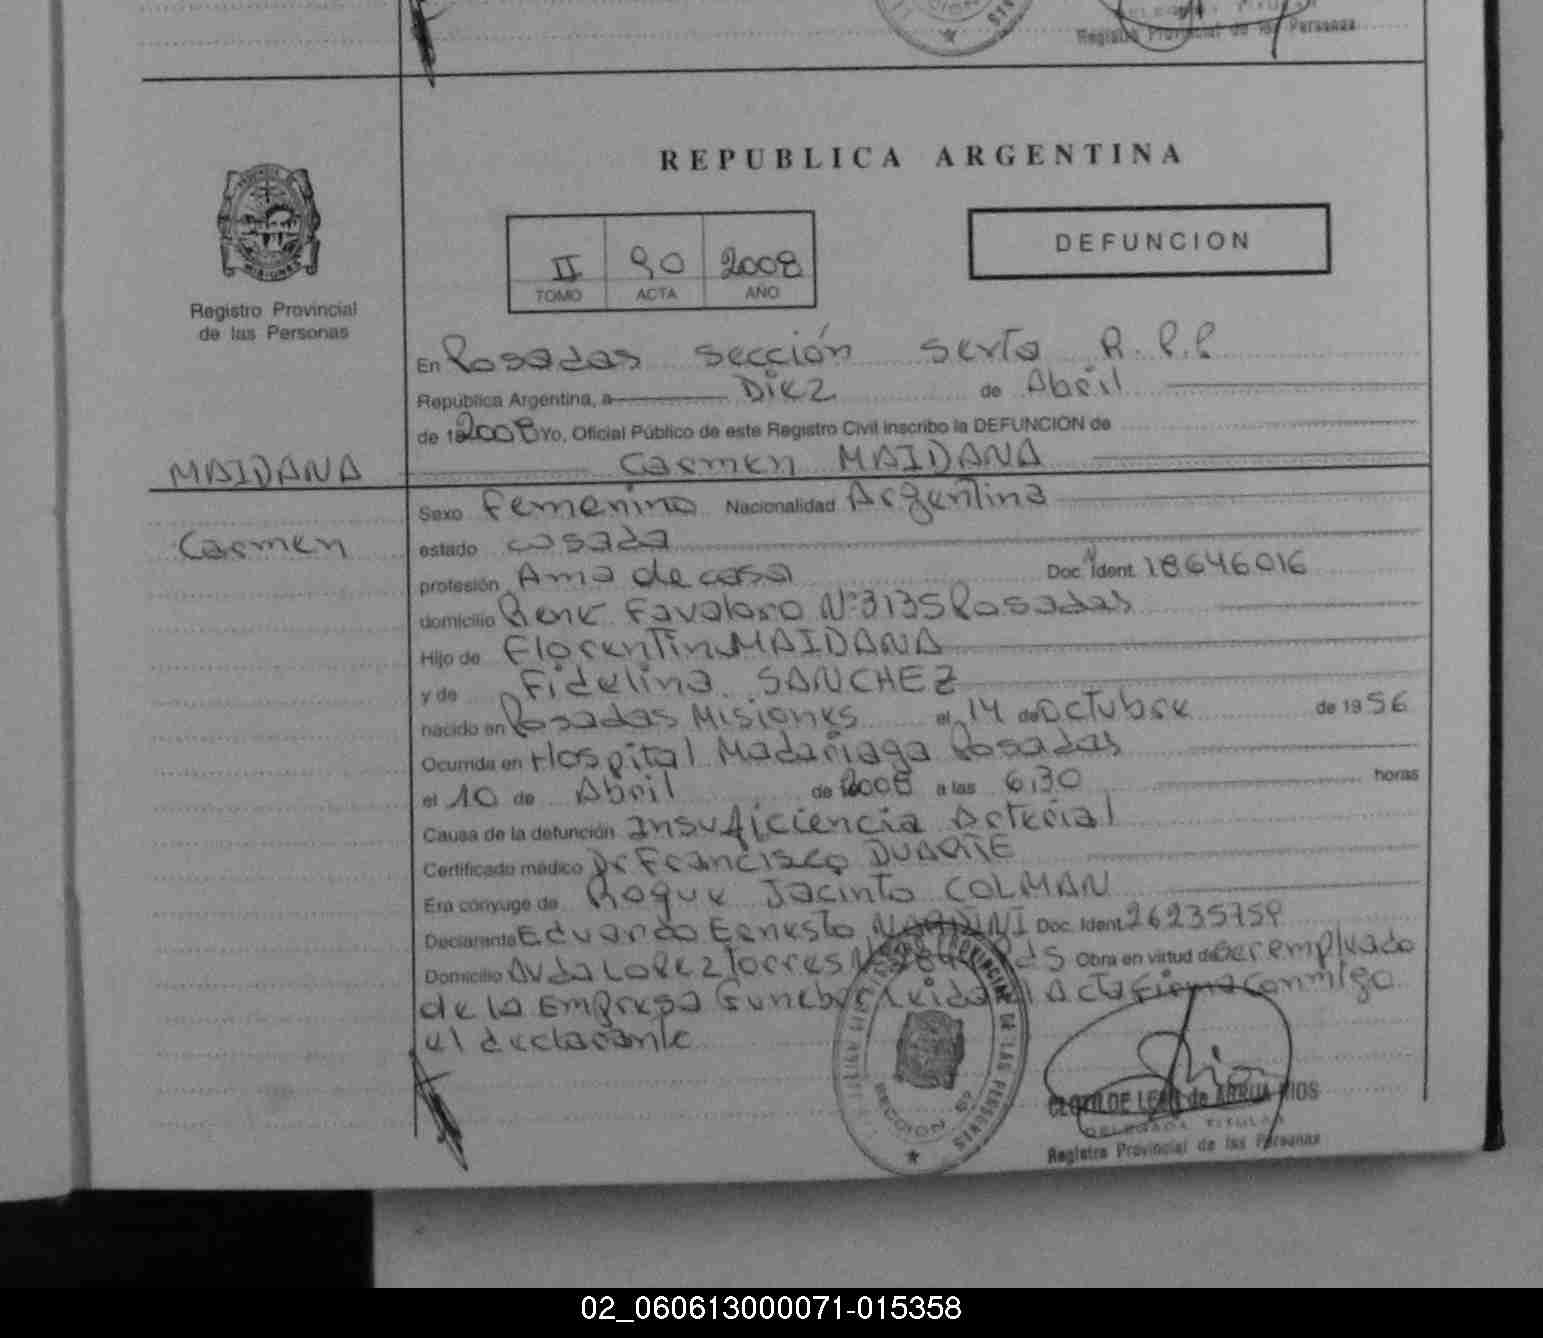 Registro Provincial de las Personas
REPUBLICA ARGENTINA
II 90 2008
TOMO ACTA AÑO
DEFUNCION
MISIONES
Registro Provincial
de las Personas
En Posadas sección sexta R.P.P
República Argentina, a Diez de Abril
de 19 2008 Yo, Oficial Público de este Registro Civil inscribo la DEFUNCION de
MAIDANA Carmen MAIDANA
Sexo Femenino Nacionalidad Argentina
Carmen
estado casada
profesión Ama de casa Doc. Ident. 18646016
domicilio Rene Favaloro Nº 3135 Posadas
Hijo de Florentin MAIDANA
y de Fidelina SANCHEZ
nacido en Posadas Misiones el 14 de Octubre de 1956
Ocurrida en Hospital Madariaga Posadas
el 10 de Abril de 2008 a las 6,30 horas
Causa de la defunción Insuficiencia Arterial
Certificado médico Dr Francisco DUARTE
Era cónyuge de Roque Jacinto COLMAN
Declarante Eduardo Ernesto NARDINI Doc. Ident. 26235759
Domicilio Avda Lopez Torres Obra en virtud de ser empleado
de la Empresa Funebre Leida el Acta Firma Conmigo
el declarante
CLOTILDE LEAL de ARRUA RIOS
DELEGADA TITULAR
Registro Provincial de las Personas
02_060613000071-015358